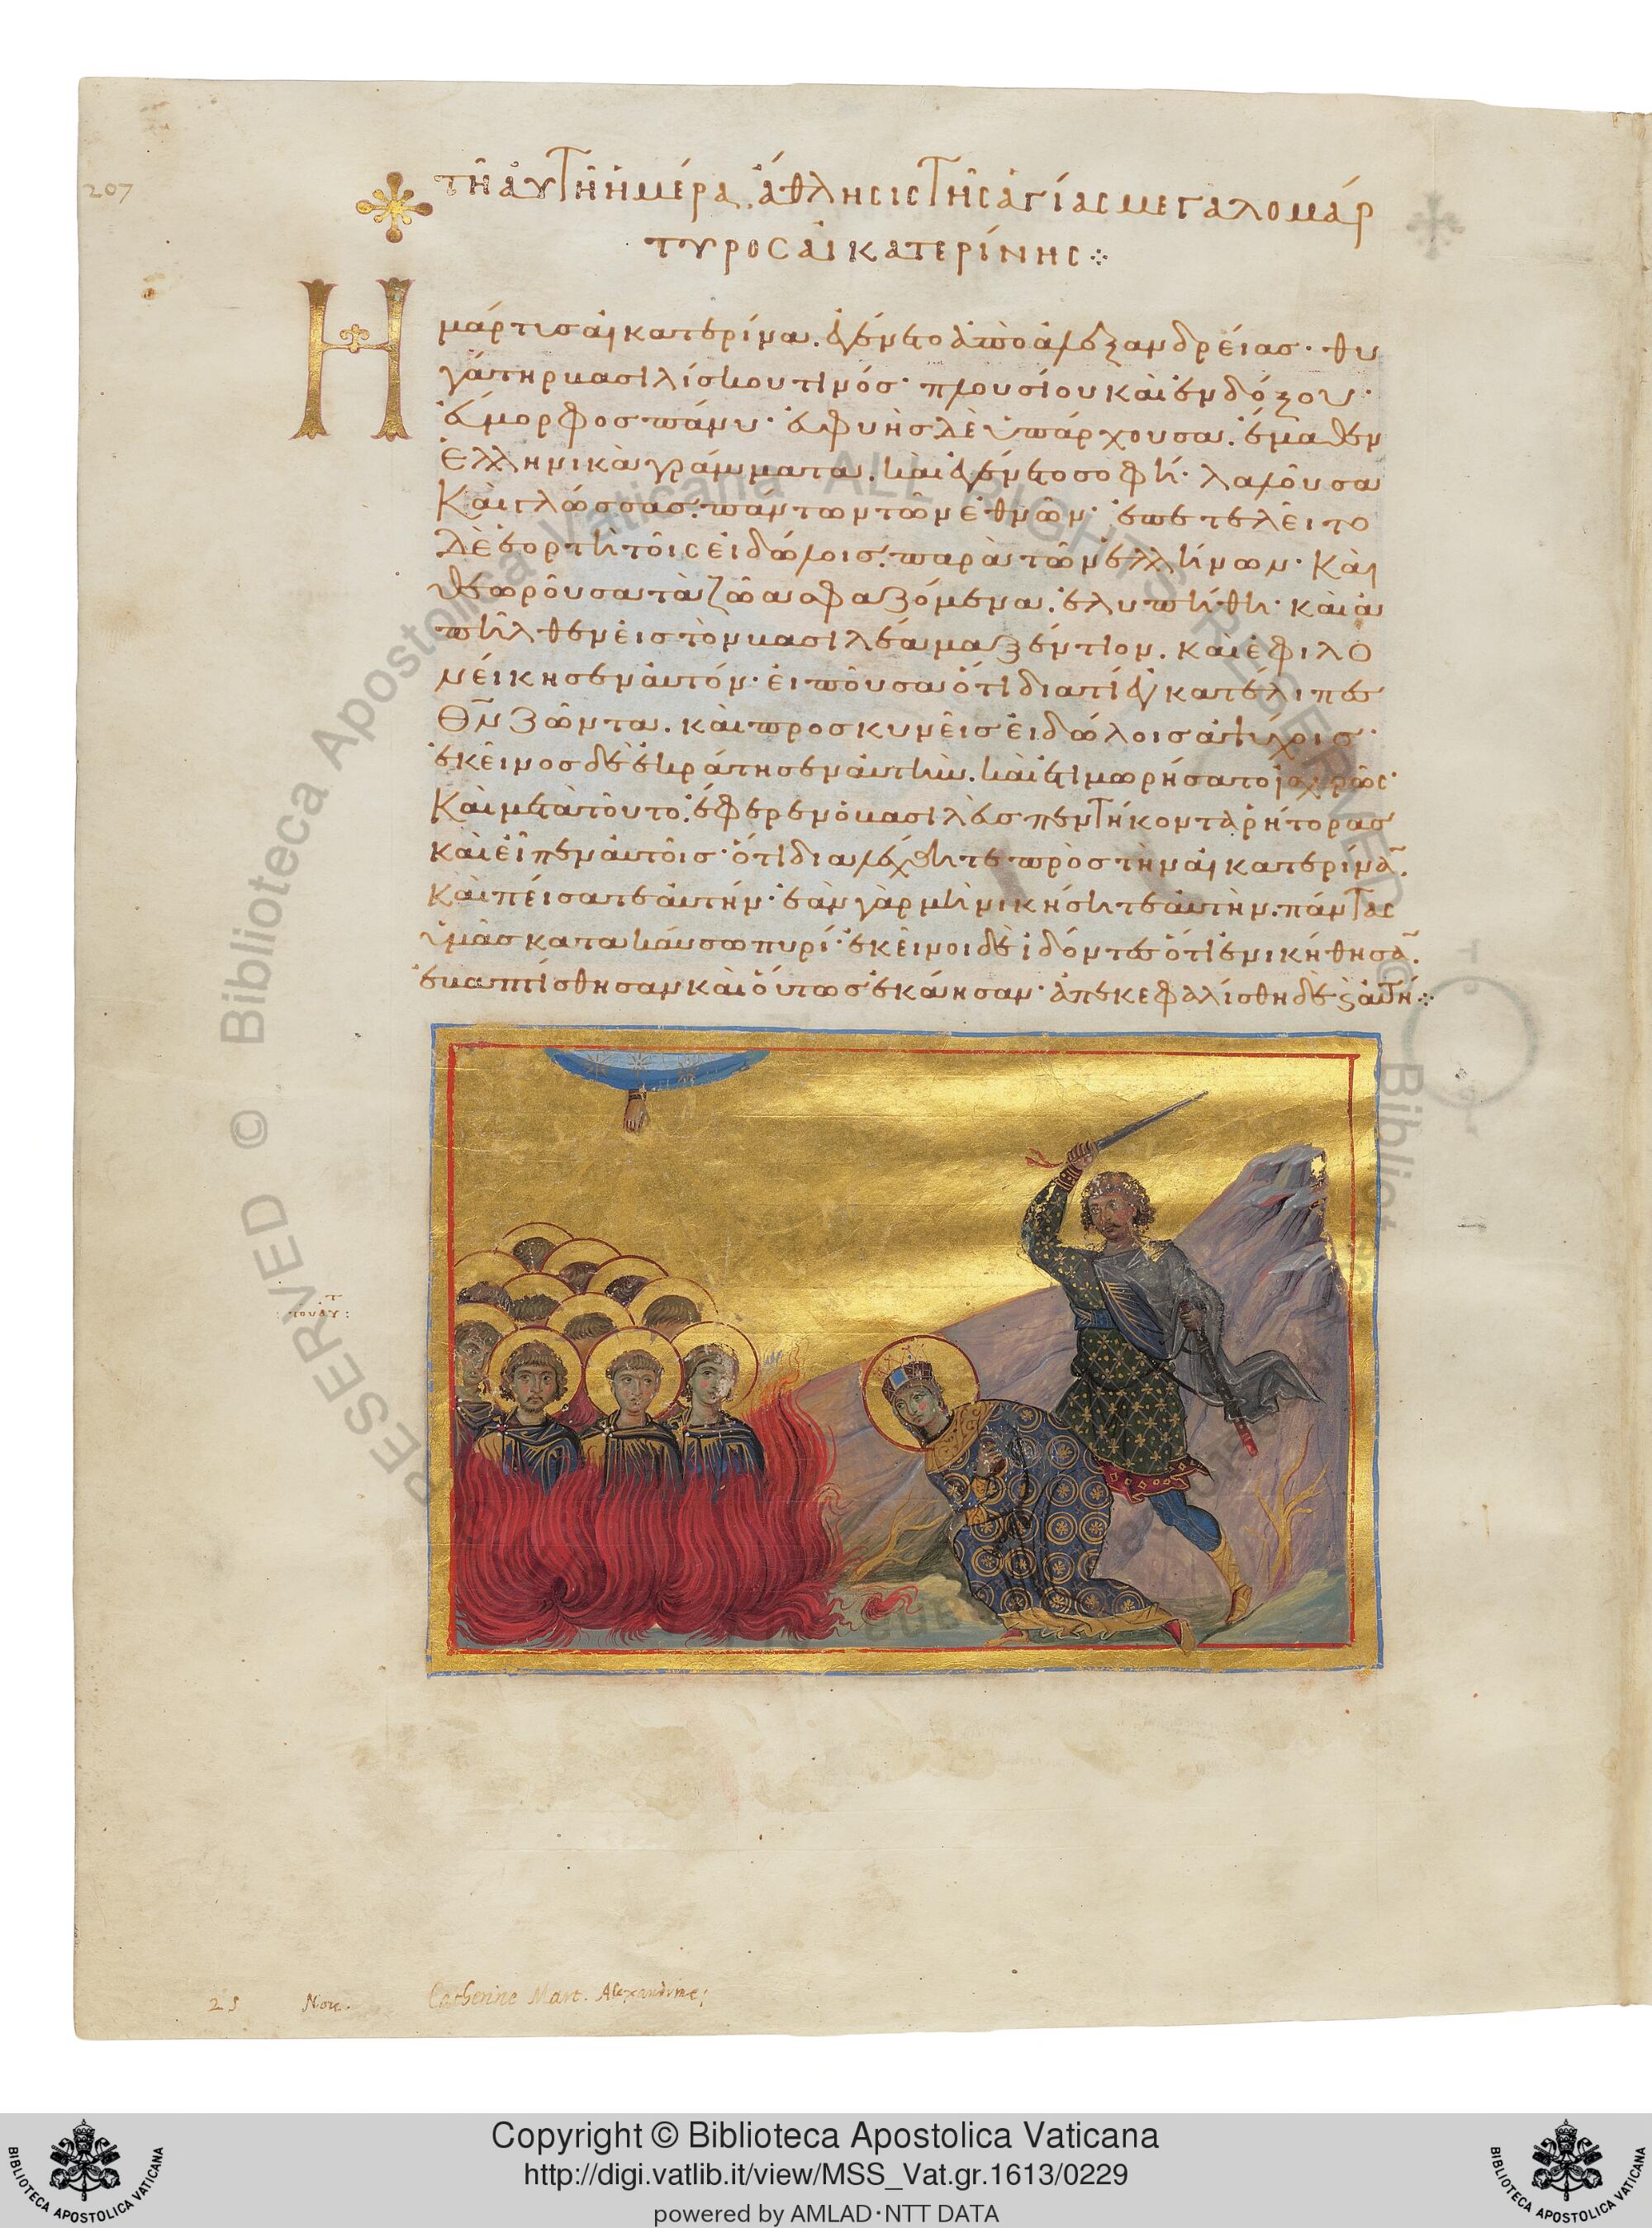 207
τῆ αὐτῆ ἡμέρα, ἄθλησις τῆς ἁγίας μεγαλομάρ
τυρος αἰκατερίνης ⁘
Η
μάρτυς αἰκατερίνα. ἐγένετο ἀπὸ ἀλεξανδρείας· θυ
γάτηρ βασιλίσκου τινός· πλουσίου καὶ ἐνδόξου·
ἔμορφος πάνυ· ἐφυὴς δὲ ὑπάρχουσα. ἔμαθεν
ἑλληνικὰ γράμματα. καὶ ἐγένετο σοφή· λαβοῦσα
καὶ γλώσσας πάντων τῶν ἐθνῶν· ἐπετελεῖτο
δὲ ἑορτὴ τοῖς εἰδώλοις παρὰ τῶν ἑλλήνων· καὶ
θεωροῦσα τὰ ζῶα σφαζόμενα. ἐλυπήθη· καὶ ἀ
πῆλθεν εἰς τὸν βασιλέα μαξέντιον. καὶ ἐφιλο
νείκησεν αὐτόν· εἰποῦσα ὅτι διατί ἐγκατέλιπες
Θν ζῶντα. καὶ προσκυνεῖς εἰδώλοις ἀψύχοις·
ἐκεῖνος δὲ ἐκράτησεν αὐτὴν. καὶ ἐτιμωρήσατο ἰσχυρῶς·
καὶ μετὰ τοῦτο. ἔφερεν ὁ βασιλεὺς πεντήκοντα ῥήτορας
καὶ εἶπεν αὐτοῖς· ὅτι διαλέχθητε πρὸς τὴν αἰκατερίνα̅.
καὶ πείσατε αὐτήν· ἐὰν γὰρ μὴ νικήσητε αὐτὴν. πάντας
ὑμᾶς κατακαύσω πυρί· ἐκεῖνοι δὲ ἰδόντες ὅτι ἐνικήθησα̅.
ἐβαπτίσθησαν καὶ οὕτως ἐκάησαν· ἀπεκεφαλίσθη δὲ ϗ αὐτή ⁘
25 Nov. Catherine Mart. Alexandrine;
Biblioteca Apostolica Vaticana ALL RIGHTS RESERVED ©
Copyright © Biblioteca Apostolica Vaticana
http://digi.vatlib.it/view/MSS_Vat.gr.1613/0229
powered by AMLAD·NTT DATA
BIBLIOTECA APOSTOLICA VATICANA
BIBLIOTECA APOSTOLICA VATICANA